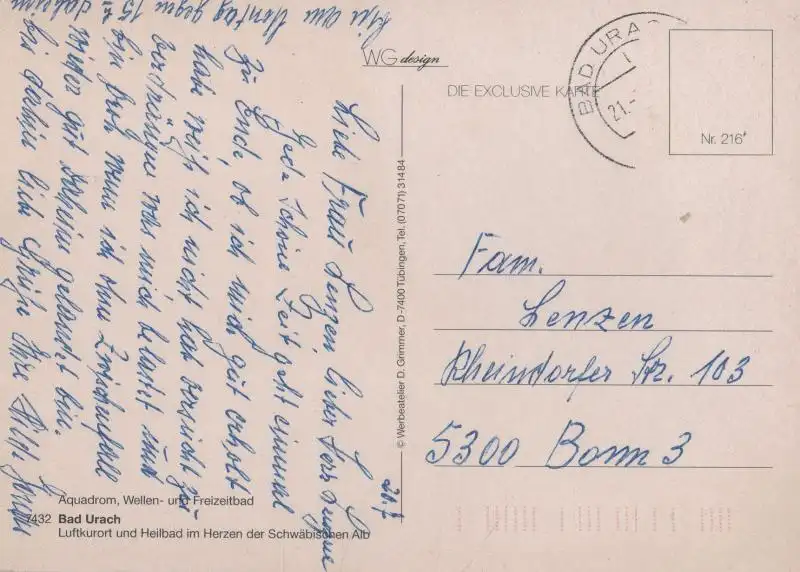 WG design
DIE EXCLUSIVE KARTE
BAD URA
21.-
Nr. 216
Fam.
Lenzen
Rheindorfer Str. 103
5300 Bonn 3
© Werbeatelier D. Grimmer, D-7400 Tübingen, Tel. (07071) 31484
Liebe Frau Lenzen, lieber Herr Lenzen
Jede schöne Zeit geht einmal
zu Ende, ob ich mich gut erholt
hab weiß ich nicht, hab versucht zu
verdrängen was mich belastet und
bin froh wenn ich ohne Zwischenfall
wieder gut daheim gelandet bin.
bis dahin liebe Grüße Ihre
hier am Montag gegen 15
Aquadrom, Wellen- und Freizeitbad
7432 Bad Urach
Luftkurort und Heilbad im Herzen der Schwäbischen Alb